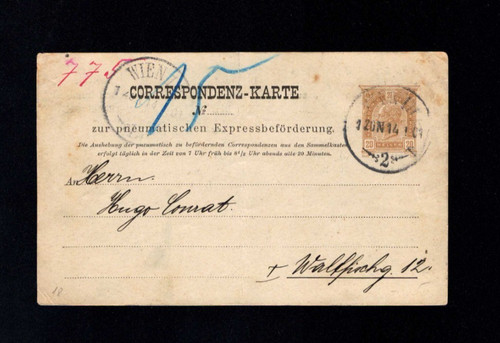 775
15
WIEN
CORRESPONDENZ-KARTE
№
zur pneumatischen Expressbeförderung.
Die Aushebung der pneumatisch zu befördernden Correspondenzen aus den Sammelkästen
erfolgt täglich in der Zeit von 7 Uhr früh bis 8½ Uhr abends alle 20 Minuten.
20 20
An Herrn
Hugo Conrat.
+ Walfischg. 12.
18